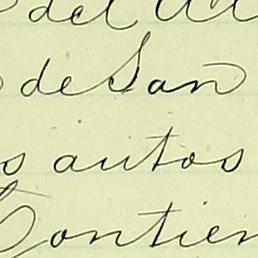 del
de San
s autos
Contien